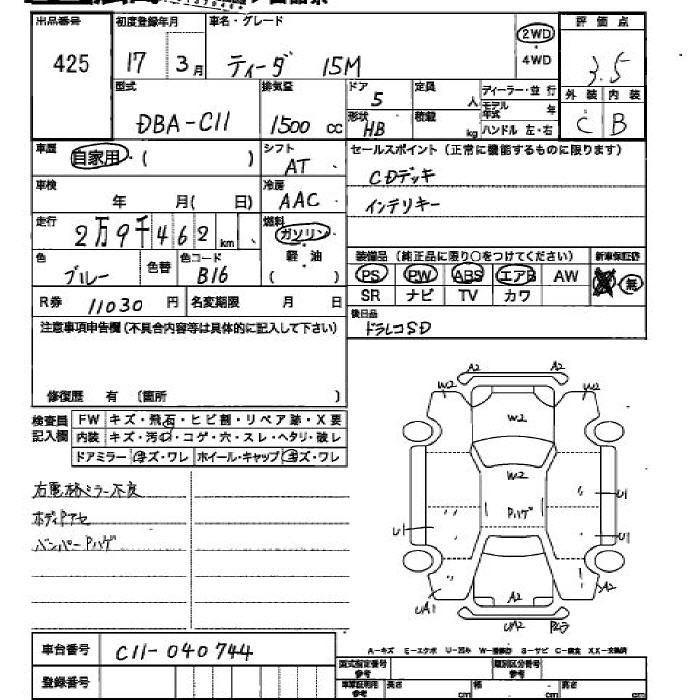 出品番号 425
初度登録年月 17 3月
車名・グレード ティーダ 15M
2WD
4WD
評価点 3.5
外装 内装
C B
型式 DBA-C11
排気量 1500 cc
ドア 5
形状 HB
定員 人
積載 kg
ディーラー・並行
モデル年式 年
ハンドル 左・右
車歴 自家用・( )
シフト AT
セールスポイント(正常に機能するものに限ります)
CDデッキ
インテリキー
車検 年 月( 日)
冷房 AAC
走行 2万9千462 km
燃料 ガソリン・軽油
( )
色 ブルー 色替
色コード B16
装備品(純正品に限り○をつけてください) 新車保証書
PS PW ABS エアB AW
SR ナビ TV カワ
無
R券 11030 円 名変期限 月 日
後日品
ドラレコSD
注意事項申告欄(不具合内容等は具体的に記入して下さい)
修復歴 有 (箇所 )
検査員記入欄
FW キズ・飛石・ヒビ割・リペア跡・X要
内装 キズ・汚れ・コゲ・穴・スレ・ヘタリ・破レ
ドアミラー キズ・ワレ ホイール・キャップ キズ・ワレ
右電格ミラー不良
ボディPアセ
バンパーPハゲ
A2 A2
W2 W2
W2
W2
Pハゲ
U1
U1 U1
A2
UA1 A2
UA2
A-キズ E-エクボ U-凹み W-補修跡 S-サビ C-腐食 XX-交換済
車台番号 C11-040744
登録番号
型式指定番号 参考
類別区分番号 参考
車庫証明用 参考 長さ cm 幅 cm 高さ cm